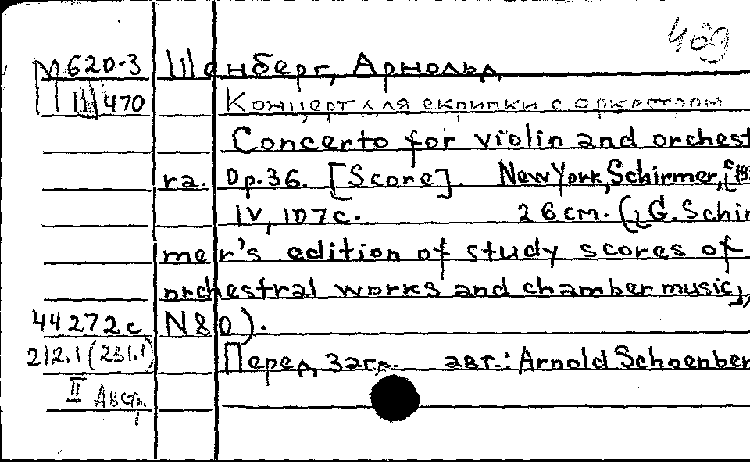 489
М620-3 Шенберг, Арнольд
Ш470 Концерт для скрипки с оркестром
Concerto for violin and orchest
ra. Op.36. [Score]. New York, Schirmer,
IV, 107c. 26cm. (G. Schir
mer's edition of study scores of
orchestral works and chamber music,
44272c N80).
212.1(231.1) Перед загл. авт.: Arnold Schoenber
II Австр.